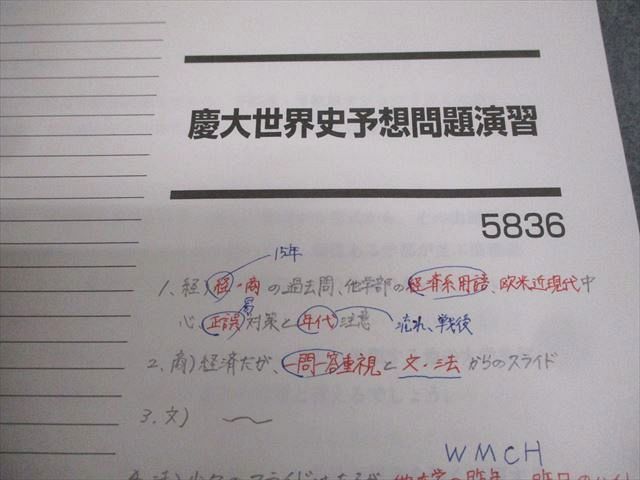 慶大世界史予想問題演習
5836
15年
1、経)経・商の過去問、他学部の経済系用語、欧米近現代中
心、正誤対策と年代注意 流れ、戦後
易
2.商)経済だが、一問一答重視と文・法からのスライド
3.文) 〜
WMCH